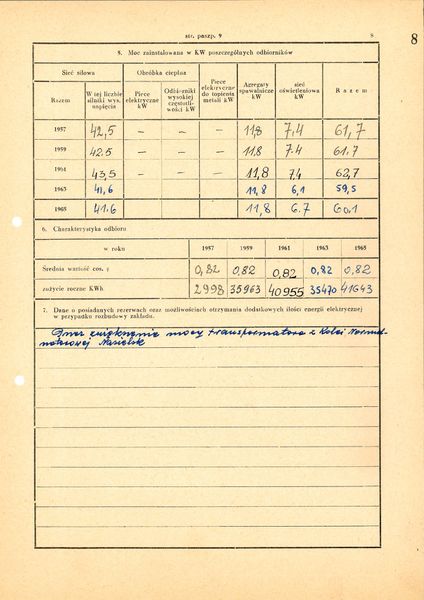 str. paszp. 9
8
8
5. Moc zainstalowana w KW poszczególnych odbiorników
Sieć siłowa
Obróbka cieplna
Razem
W tej liczbie silniki wys. napięcia
Piece elektryczne kW
Odbiorniki wysokiej częstotliwości kW
Piece elektryczne do topienia metali kW
Agregaty spawalnicze kW
sieć oświetleniowa kW
Razem
1957 42,5 — — — 11,8 7.4 61,7
1959 42.5 — — — 11,8 7.4 61.7
1961 43,5 — — — 11,8 7,4 62,7
1963 41,6 11,8 6,1 59,5
1965 41.6 11,8 6.7 60,1
6. Charakterystyka odbioru
w roku 1957 1959 1961 1963 1965
Średnia wartość cos. φ 0,82 0,82 0,82 0,82 0,82
zużycie roczne KWh 2998 35963 40955 35470 41643
7. Dane o posiadanych rezerwach oraz możliwościach otrzymania dodatkowych ilości energii elektrycznej
w przypadku rozbudowy zakładu.
Przez zwiększenie mocy transformatora z Kolei Normal-
notorowej Nasielsk